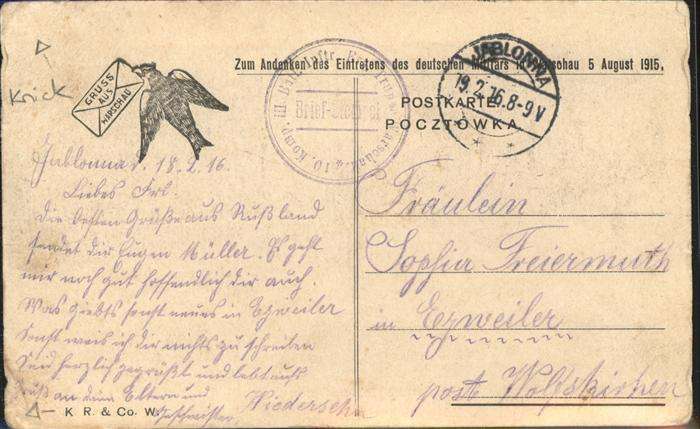 Knick
GRUSS
AUS
WARSCHAU
Zum Andenken des Eintretens des deutschen Militärs in Warschau 5 August 1915,
JABLONNA
19.2.16.8-9V
Brief-Stempel
POSTKARTE
POCZTÓWKA
Jablonna d. 18.2.16.
Liebes Frl
die besten Grüße aus Rußland
sendet dir Eugen Müller. Es geht
mir noch gut hoffendlich dir auch.
Was giebts sonst neues in Ezweiler
Sonst weis ich dir nichts zu schreiben
Seid herzlich gegrüßt und lebt
Gruß an deine Eltern und
Geschwister
Wiedersehn
Fräulein
Sophie Freiermuth
in Ezweiler
post Wolfskirchen
K R. & Co. W.